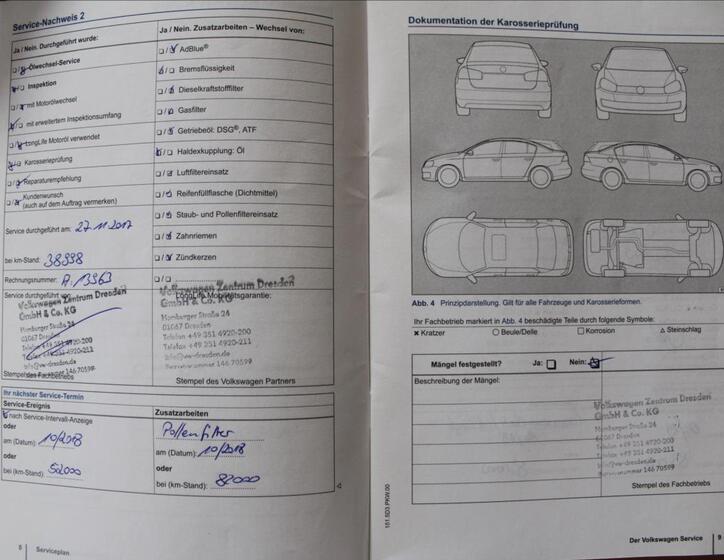 Service-Nachweis 2
Ja / Nein. Durchgeführt wurde:
Ölwechsel-Service
Inspektion
mit Motorölwechsel
mit erweitertem Inspektionsumfang
LongLife Motoröl verwendet
Karosserieprüfung
Reparaturempfehlung
Kundenwunsch
(auch auf dem Auftrag vermerken)
Service durchgeführt am: 27.11.2017
bei km-Stand: 38998
Rechnungsnummer:
Service durchgeführt von:
Volkswagen Zentrum Dresden
GmbH & Co. KG
Hamburger Straße 24
01067 Dresden
Telefon +49 351 4920-200
Telefax +49 351 4920-211
info@vw-dresden.de
146 70599
Stempel des Fachbetriebs
Ja / Nein. Zusatzarbeiten – Wechsel von:
AdBlue®
Bremsflüssigkeit
Dieselkraftstofffilter
Gasfilter
Getriebeöl: DSG®, ATF
Haldexkupplung: Öl
Luftfiltereinsatz
Reifenfüllflasche (Dichtmittel)
Staub- und Pollenfiltereinsatz
Zahnriemen
Zündkerzen
LongLife Mobilitätsgarantie:
Volkswagen Zentrum Dresden
GmbH & Co. KG
Hamburger Straße 24
01067 Dresden
Telefon +49 351 4920-200
Telefax +49 351 4920-211
info@vw-dresden.de
146 70599
Stempel des Volkswagen Partners
Ihr nächster Service-Termin
Service-Ereignis
nach Service-Intervall-Anzeige
oder
am (Datum): 10/2018
oder
bei (km-Stand):
Zusatzarbeiten
Pollenfilter
am (Datum): 10/2018
oder
bei (km-Stand): 82000
8 Serviceplan
Dokumentation der Karosserieprüfung
Abb. 4 Prinzipdarstellung. Gilt für alle Fahrzeuge und Karosserieformen.
Ihr Fachbetrieb markiert in Abb. 4 beschädigte Teile durch folgende Symbole:
× Kratzer ○ Beule/Delle □ Korrosion △ Steinschlag
Mängel festgestellt? Ja: Nein:
Beschreibung der Mängel:
Volkswagen Zentrum Dresden
GmbH & Co. KG
Hamburger Straße 24
01067 Dresden
Telefon +49 351 4920-200
Telefax +49 351 4920-211
info@vw-dresden.de
146 70599
Stempel des Fachbetriebs
151.5D3.PKW.00
Der Volkswagen Service 9